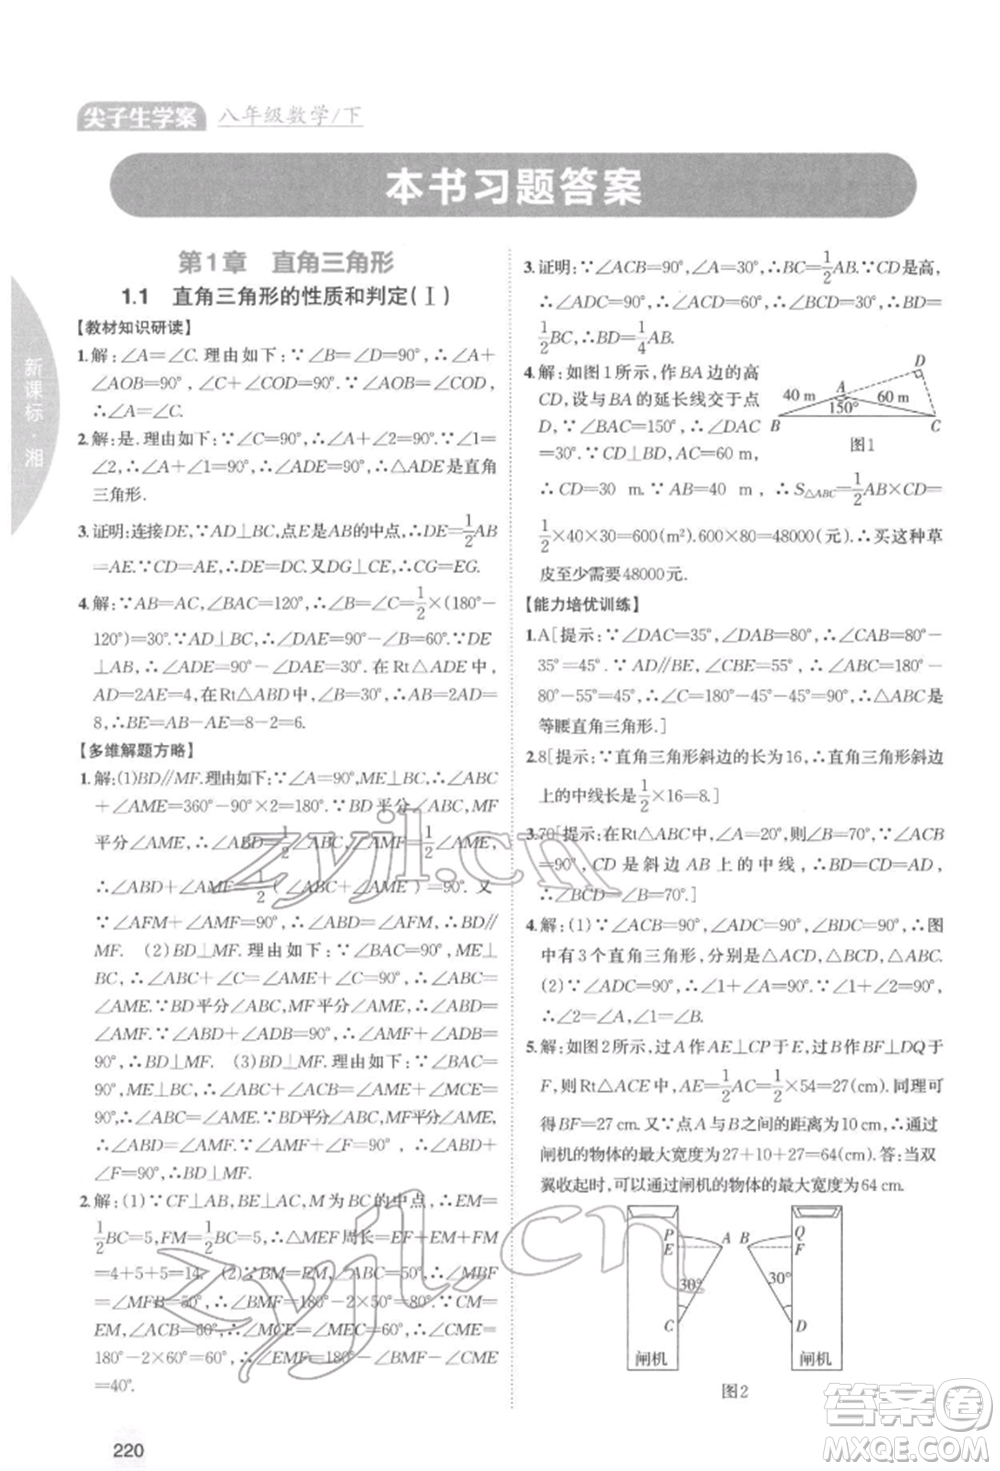 尖子生学案 八年级数学/下
本书习题答案
新课标·湘
第1章 直角三角形
1.1 直角三角形的性质和判定(Ⅰ)
【教材知识研读】
1.解:∠A=∠C.理由如下:∵∠B=∠D=90°,∴∠A+
∠AOB=90°,∠C+∠COD=90°.∵∠AOB=∠COD,
∴∠A=∠C.
2.解:是.理由如下:∵∠C=90°,∴∠A+∠2=90°.∵
∠1=∠2,∴∠A+∠1=90°,∴∠ADE=90°,∴△ADE是直角
三角形.
3.证明:连接DE,∵AD⊥BC,点E是AB的中点,∴DE=1/2AB
=BE.∵BE=CD,∴DE=CD.又DG⊥CE,∴CG=EG.
4.解:∵AB=AC,∠BAC=120°,∴∠B=∠C=1/2×(180°−
120°)=30°.∵AD⊥BC,∴∠DAE=∠DAC=60°.∵DE
⊥AB,∴∠AED=90°,∴∠ADE=30°.在Rt△ADE中,
AD=2AE=4,在Rt△ABD中,∵∠B=30°,∴AB=2AD=
8,∴BE=AB−AE=8−2=6.
【多维解题方略】
1.解:(1)BD∥MF.理由如下:∵∠A=90°,ME⊥BC,∴∠ABC
+∠AME=360°−90°×2=180°.∵BD平分∠ABC,MF
平分∠AME,∴∠ABD=1/2∠ABC,∠AMF=1/2∠AME,
∴∠ABD+∠AMF=1/2(∠ABC+∠AME)=90°.又
∵∠AFM+∠AMF=90°,∴∠ABD=∠AFM,∴BD∥
MF. (2)BD⊥MF.理由如下:∵∠BAC=90°,ME⊥BC,
∴∠ABC+∠C=∠AME+∠C=90°,∴∠ABC=
∠AME.∵BD平分∠ABC,MF平分∠AME,∴∠ABD=
∠AMF.∵∠ABD+∠ADB=90°,∴∠AMF+∠ADB=
90°,∴BD⊥MF. (3)BD⊥MF.理由如下:∵∠BAC=
90°,ME⊥BC,∴∠ABC+∠C=∠AME+∠MCE=90°,
∴∠ABC=∠AME.∵BD平分∠ABC,MF平分∠AME,
∴∠ABD=∠AMF.∵∠AMF+∠F=90°,∴∠ABD+
∠F=90°,∴BD⊥MF.
2.解:(1)∵CF⊥AB,BE⊥AC,M为BC的中点,∴EM=
1/2BC=5,FM=1/2BC=5,∴△MEF周长=EF+EM+FM
=4+5+5=14. (2)∵BM=FM,∠ABC=50°,∴∠MFB=
∠MBF=50°,∴∠BMF=180°−2×50°=80°.∵CM=EM,
∠ACB=60°,∴∠MEC=∠MCE=60°,∴∠CME=
180°−2×60°=60°,∴∠EMF=180°−∠BMF−∠CME
=40°.
220
3.证明:∵∠ACB=90°,∠A=30°,∴BC=1/2AB.∵CD是高,
∴∠ADC=90°,∴∠ACD=60°,∴∠BCD=30°,∴BD=
1/2BC,∴BD=1/4AB.
4.解:如图1所示,作BA边的高
CD,设与BA的延长线交于点
D.∵∠BAC=150°,∴∠DAC
=30°.∵CD⊥BD,AC=60 m,
∴CD=30 m.∵AB=40 m,∴S△ABC=1/2AB×CD=
1/2×40×30=600(m²).600×80=48000(元).∴买这种草
皮至少需要48000元.
D
40 m A 60 m
150°
B C
图1
【能力培优训练】
1.A[提示:∵∠DAC=35°,∠DAB=80°,∴∠BAC=80°−
35°=45°.∵AD∥BE,∠CBE=55°,∴∠ABC=180°−
80°−55°=45°,∴∠C=180°−45°−45°=90°,∴△ABC是
等腰直角三角形.]
2.8[提示:∵直角三角形斜边的长为16,∴直角三角形斜边
上的中线长是1/2×16=8.]
3.70[提示:在Rt△ABC中,∠A=20°,则∠B=70°,∵∠ACB
=90°,CD是斜边AB上的中线,∴BD=CD=AD,
∴∠BCD=∠B=70°.]
4.解:(1)∵∠ACB=90°,∠ADC=90°,∠BDC=90°,∴图
中有3个直角三角形,分别是△ACD,△BCD,△ABC.
(2)∵∠ACB=90°,∴∠1+∠2=90°.∵∠A+∠2=90°,
∴∠1=∠A.
5.解:如图2所示,过A作AE⊥CP于E,过B作BF⊥DQ于
F,则Rt△ACE中,AE=1/2AC=1/2×54=27(cm).同理可
得BF=27 cm.又∵点A与B之间的距离为10 cm,∴通过
闸机的物体的最大宽度为27+10+27=64(cm).答:当双
翼收起时,可以通过闸机的物体的最大宽度为64 cm.
P A B Q
E F
30° 30°
C D
闸机 闸机
图2
zyjl.cn
zyjl.cn
答案圈
MXQE.COM